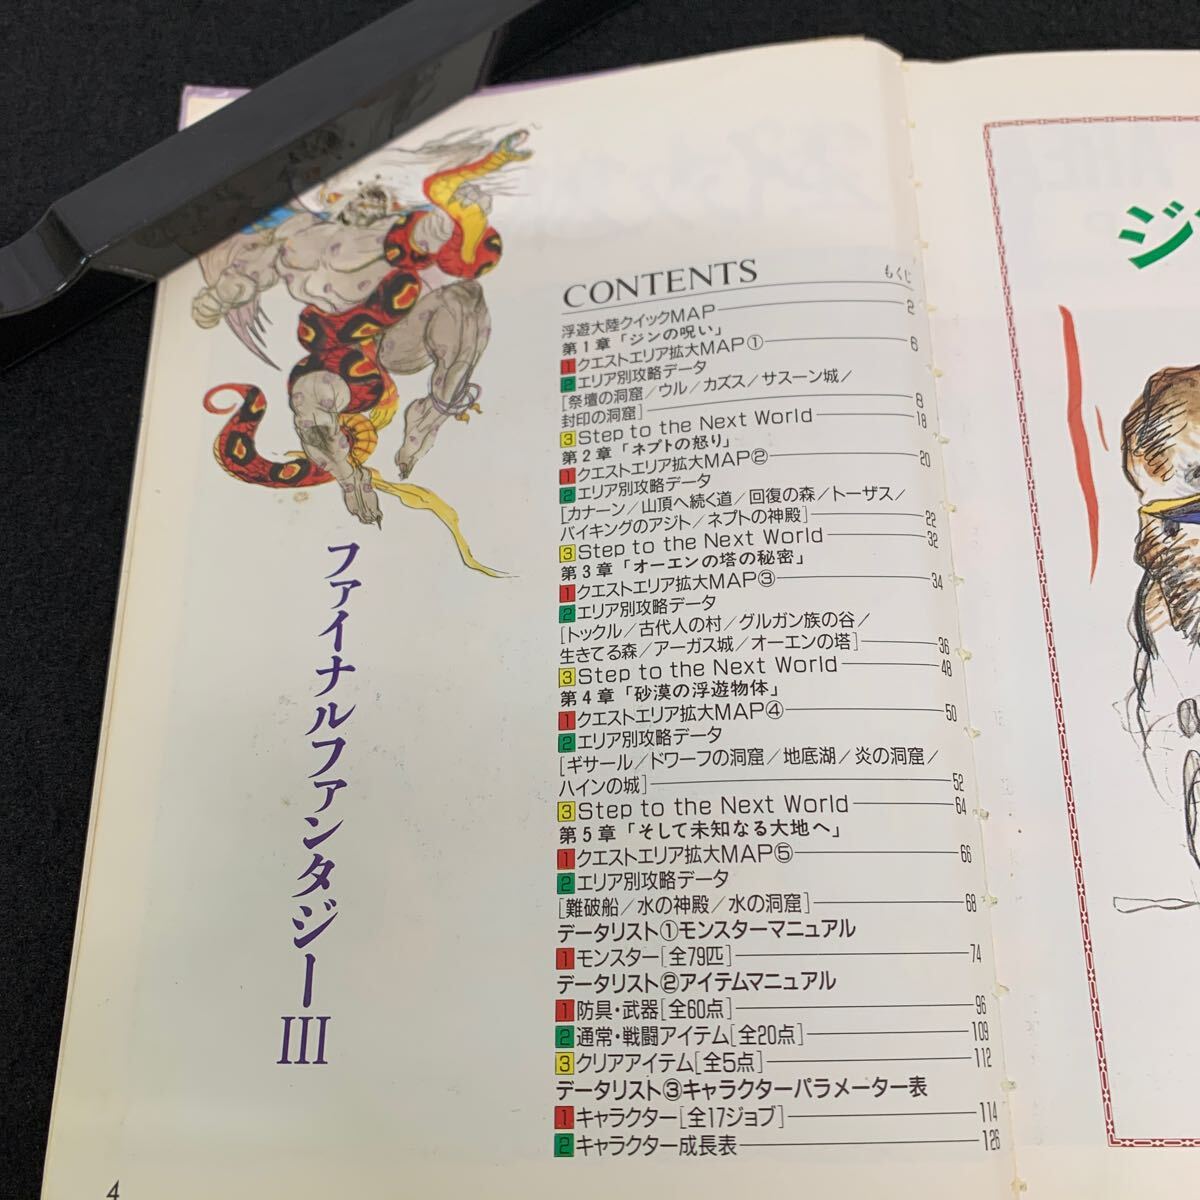 CONTENTS もくじ
浮遊大陸クイックMAP 2
第1章「ジンの呪い」
1 クエストエリア拡大MAP① 6
2 エリア別攻略データ
[祭壇の洞窟/ウル/カズス/サスーン城/
封印の洞窟] 8
3 Step to the Next World 18
第2章「ネプトの怒り」
1 クエストエリア拡大MAP② 20
2 エリア別攻略データ
[カナーン/山頂へ続く道/回復の森/トーザス/
バイキングのアジト/ネプトの神殿] 22
3 Step to the Next World 32
第3章「オーエンの塔の秘密」
1 クエストエリア拡大MAP③ 34
2 エリア別攻略データ
[トックル/古代人の村/グルガン族の谷/
生きてる森/アーガス城/オーエンの塔] 36
3 Step to the Next World 48
第4章「砂漠の浮遊物体」
1 クエストエリア拡大MAP④ 50
2 エリア別攻略データ
[ギサール/ドワーフの洞窟/地底湖/炎の洞窟/
ハインの城] 52
3 Step to the Next World 64
第5章「そして未知なる大地へ」
1 クエストエリア拡大MAP⑤ 66
2 エリア別攻略データ
[難破船/水の神殿/水の洞窟] 68
データリスト①モンスターマニュアル
1 モンスター[全79匹] 74
データリスト②アイテムマニュアル
1 防具・武器[全60点] 96
2 通常・戦闘アイテム[全20点] 109
3 クリアアイテム[全5点] 112
データリスト③キャラクターパラメーター表
1 キャラクター[全17ジョブ] 114
2 キャラクター成長表 126
ファイナルファンタジーIII
4
ジ